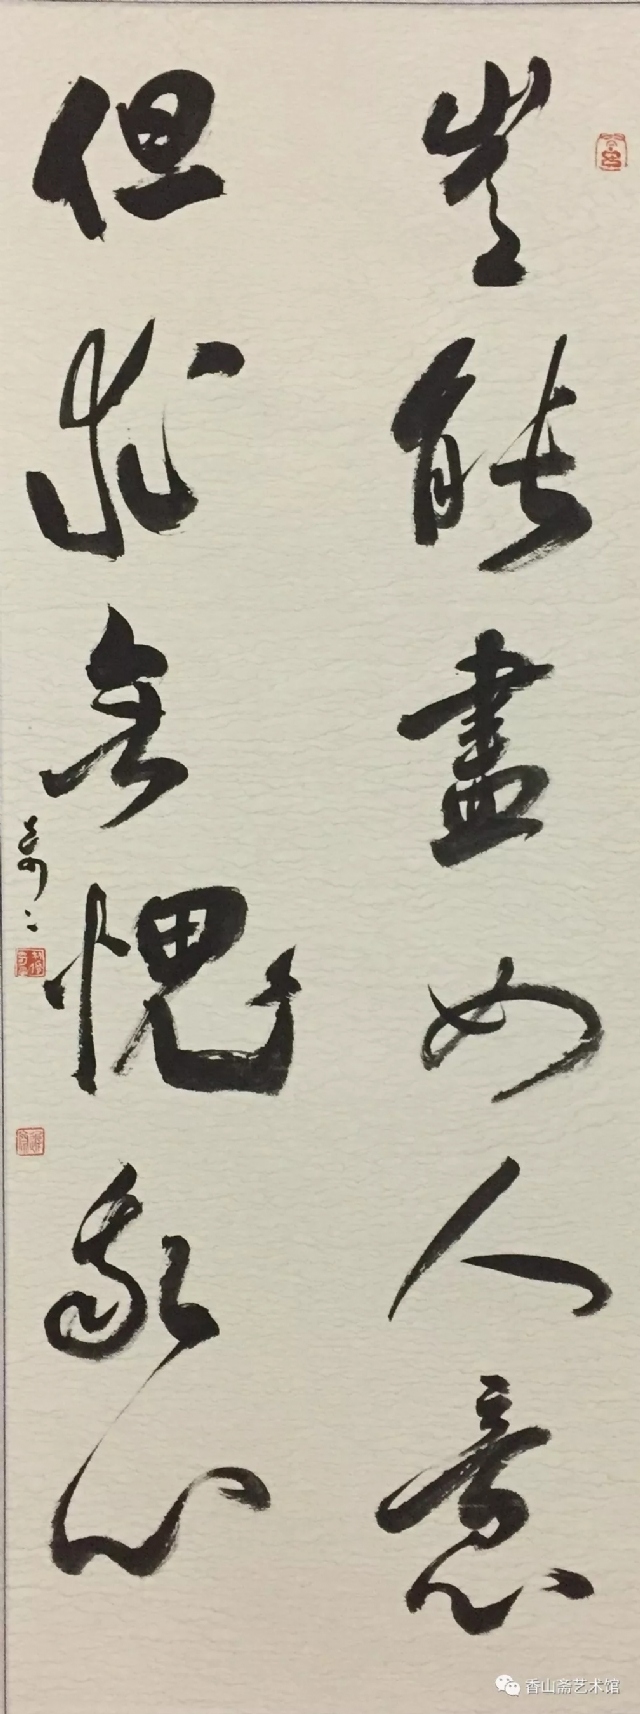 豈能盡如人意
但求無愧我心
香山斋艺术馆